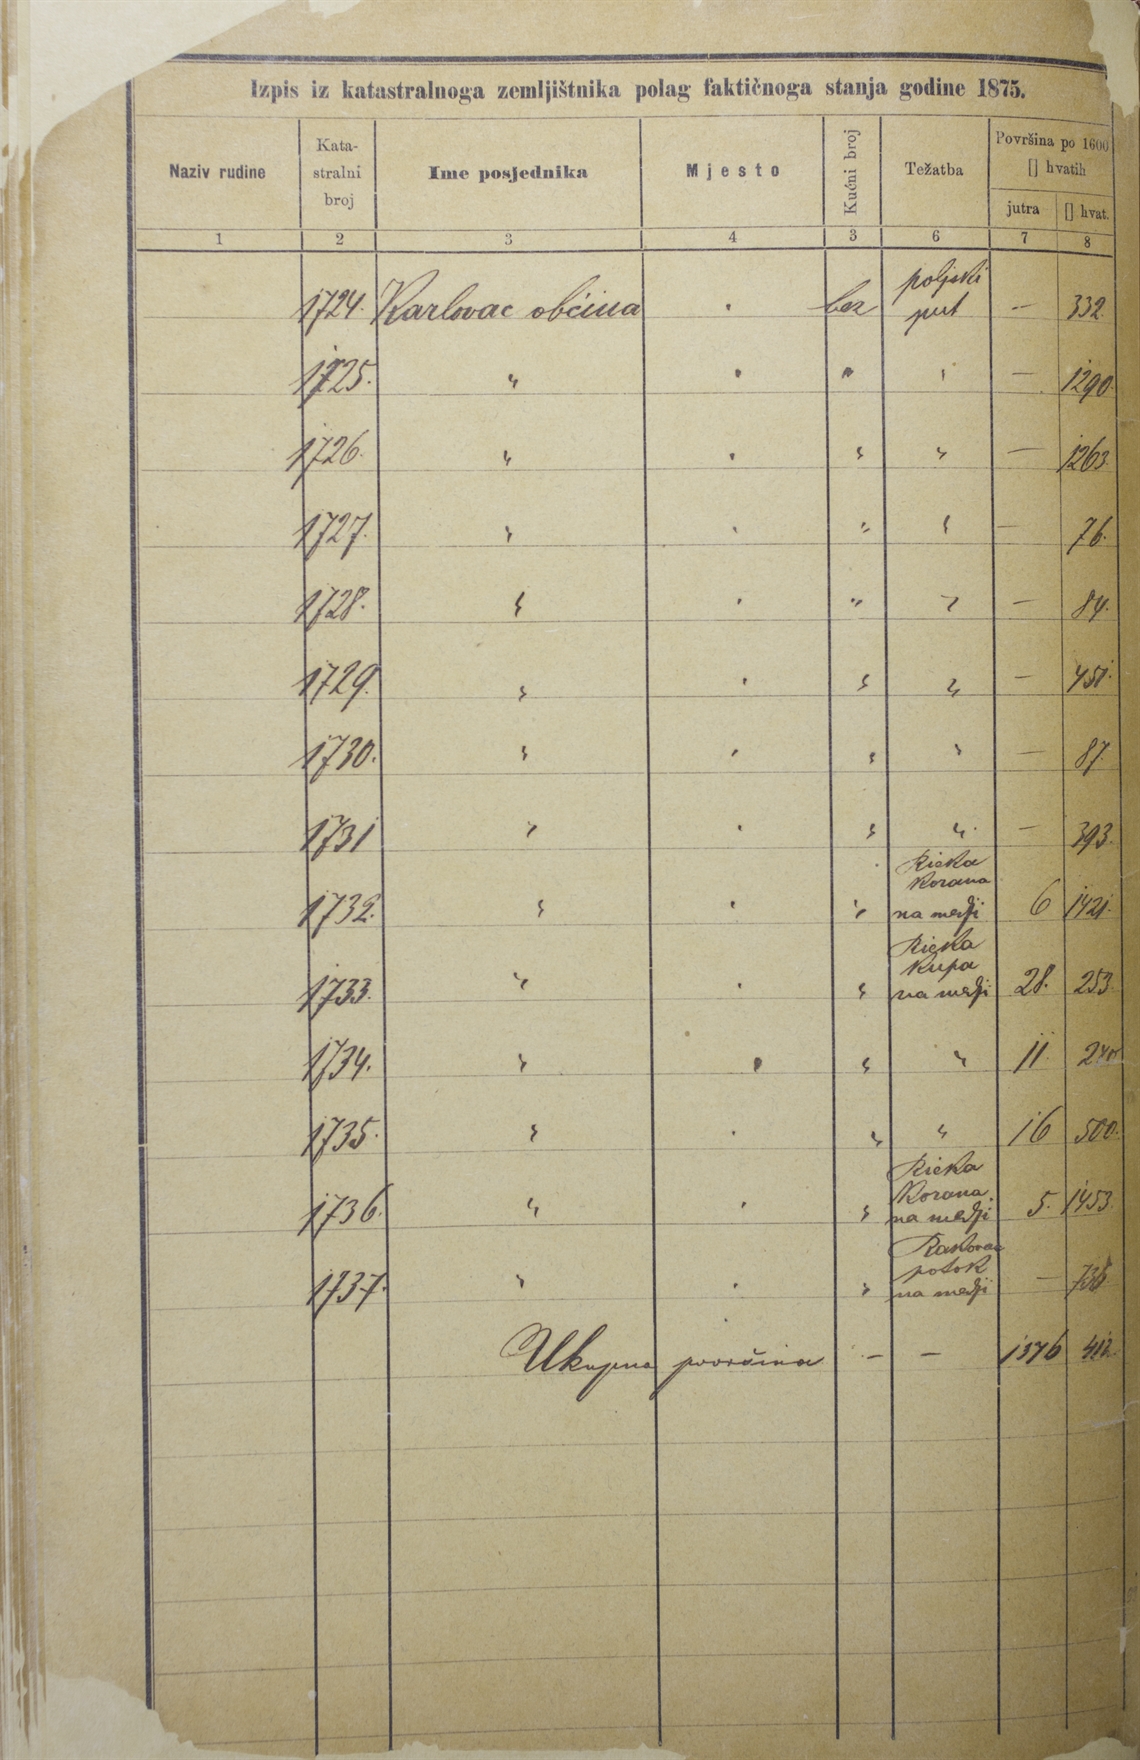 Izpis iz katastralnoga zemljištnika polag faktičnoga stanja godine 1875.
Naziv rudine | Kata-stralni broj | Ime posjednika | Mjesto | Kućni broj | Težatba | Površina po 1600 [] hvatih
jutra | [] hvat.
1 | 2 | 3 | 4 | 3 | 6 | 7 | 8
1724. | Karlovac obćina | " | bez | poljski put | — | 332
1725. | " | " | " | " | — | 1290.
1726. | " | " | " | " | — | 1263
1727. | " | " | " | " | — | 76.
1728. | " | " | " | " | — | 84.
1729. | " | " | " | " | — | 451.
1730. | " | " | " | " | — | 87.
1731 | " | " | " | " | — | 393.
1732. | " | " | " | Rieka Korana na medji | 6 | 1421.
1733. | " | " | " | Rieka Kupa na medji | 28. | 253
1734. | " | " | " | " | 11. | 240
1735. | " | " | " | " | 16 | 500.
1736. | " | " | " | Rieka Korana na medji | 5. | 1453.
1737. | " | " | " | Rakovac potok na medji | —
Ukupna površina — — 1376 412